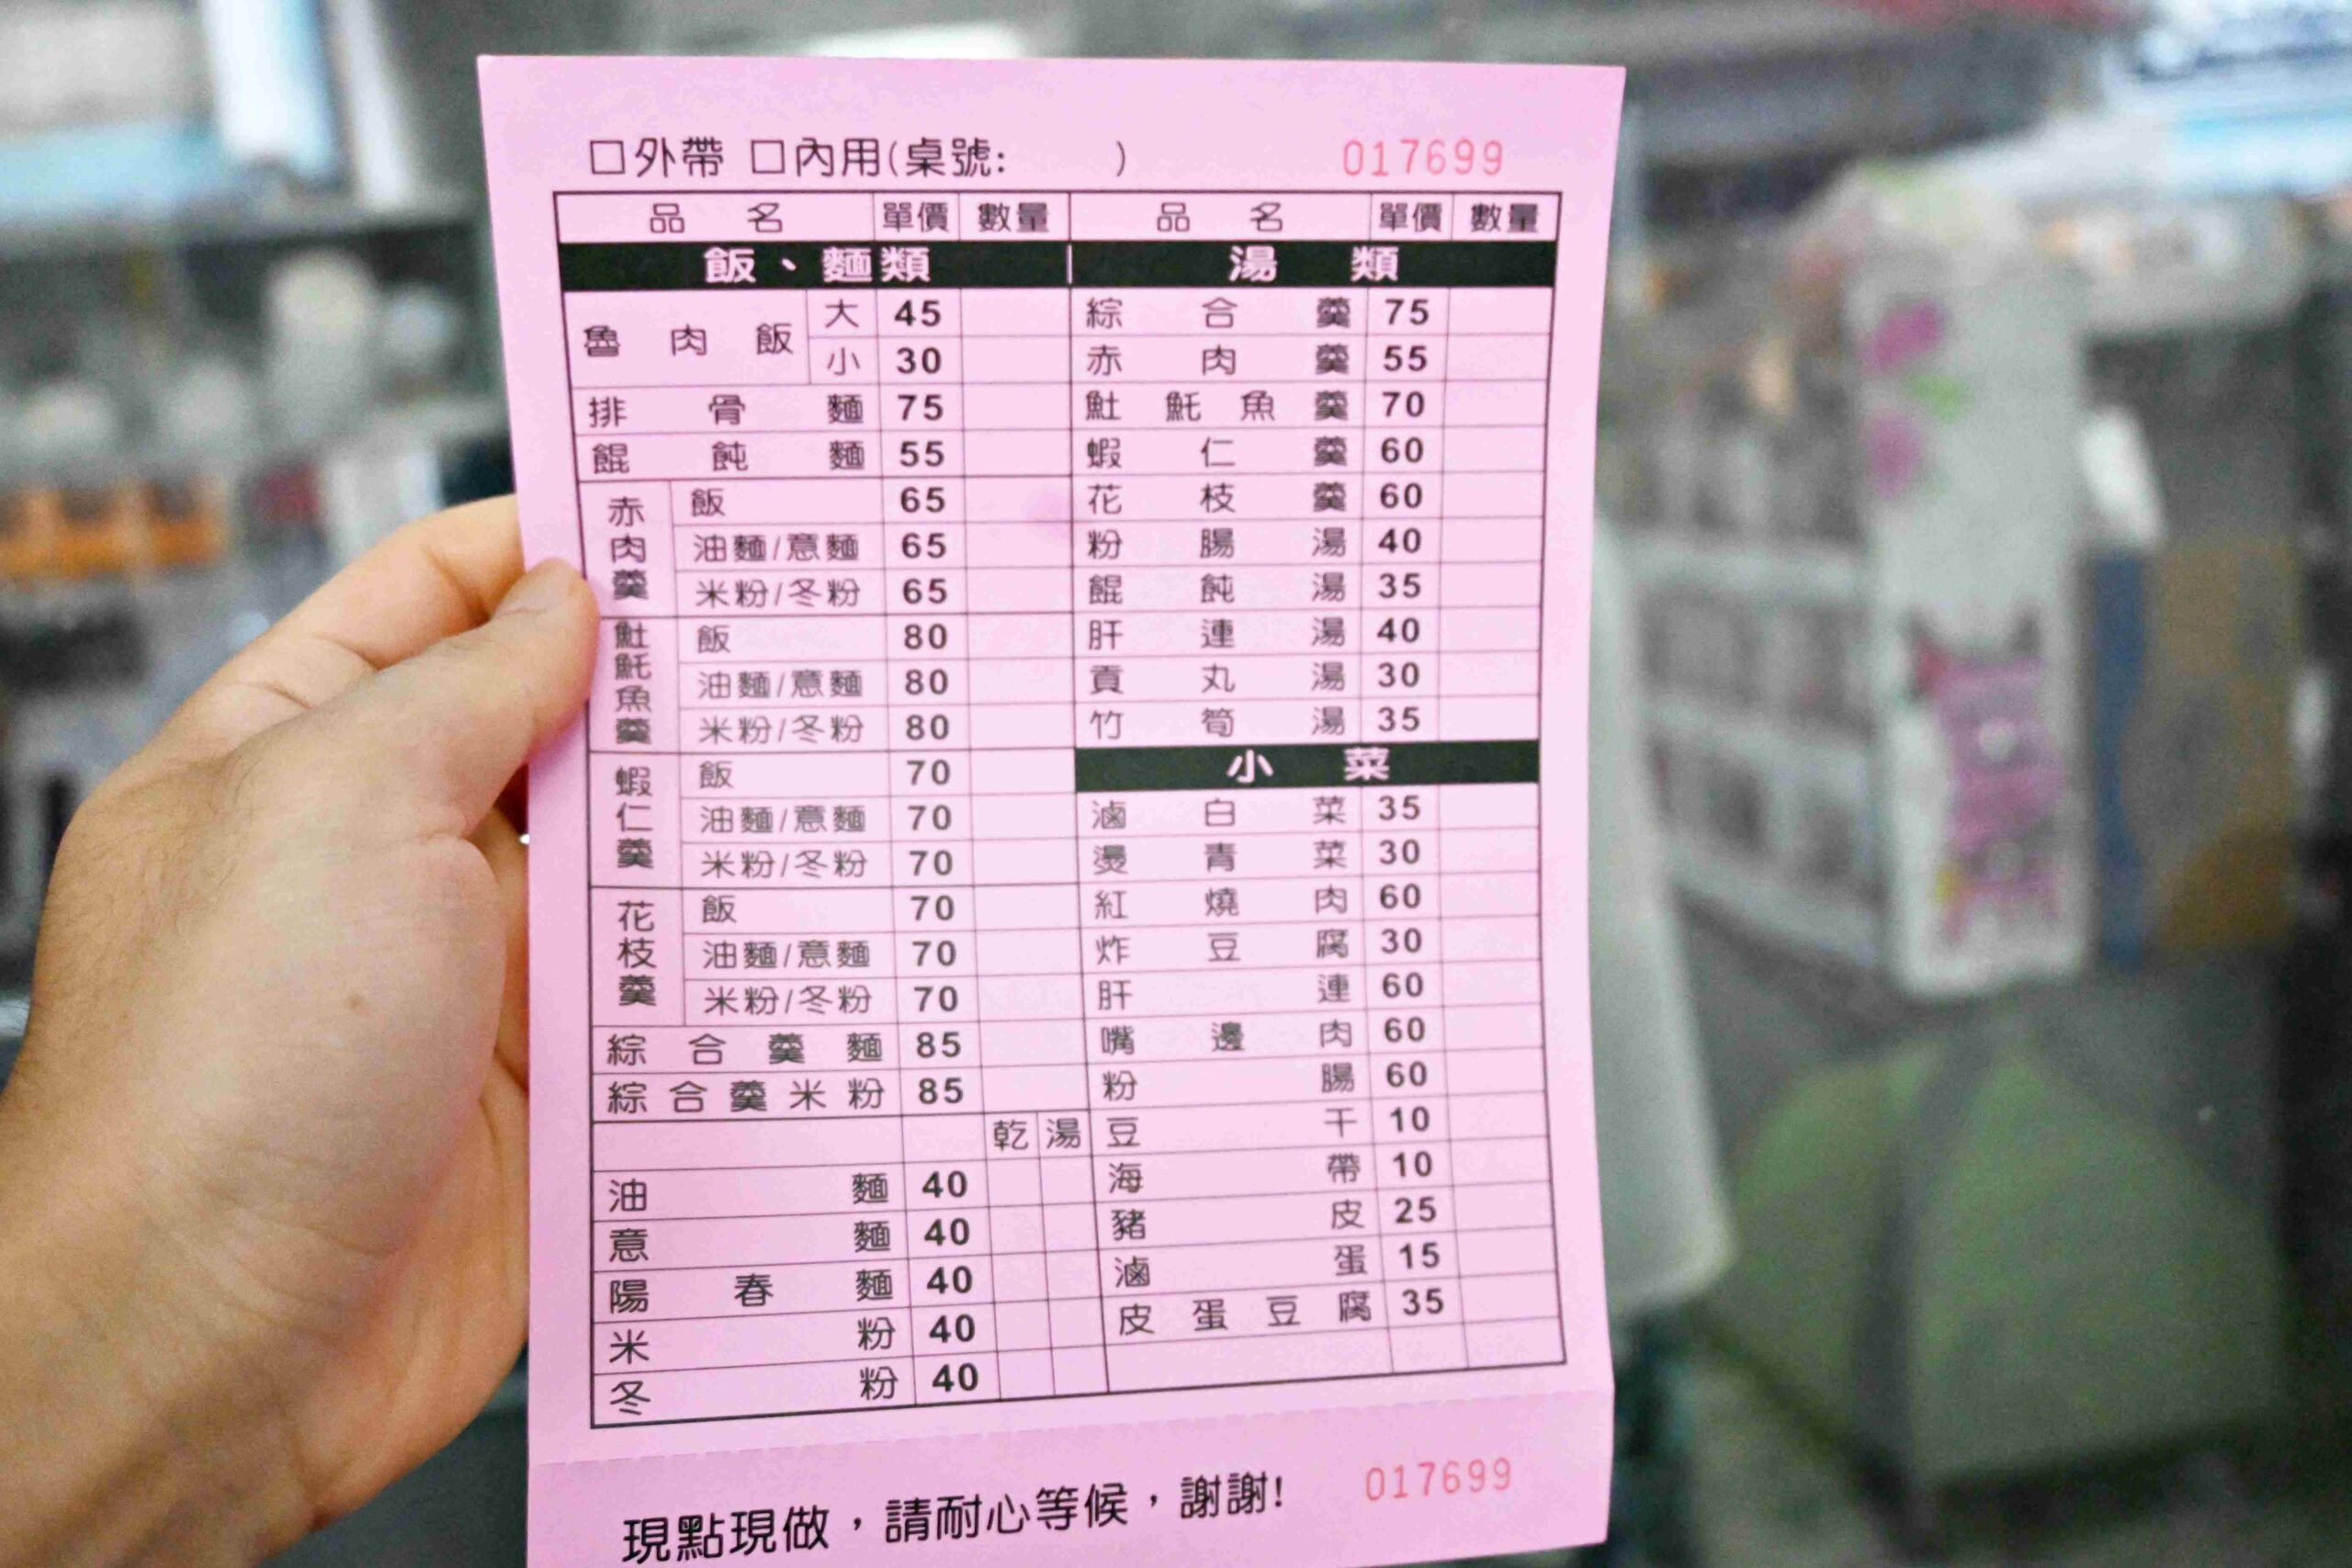 □外帶 □內用(桌號: ) 017699
品名 單價 數量 品名 單價 數量
飯、麵類
魯肉飯 大 45
小 30
排骨麵 75
餛飩麵 55
赤肉羹 飯 65
油麵/意麵 65
米粉/冬粉 65
魠魠魚羹 飯 80
油麵/意麵 80
米粉/冬粉 80
蝦仁羹 飯 70
油麵/意麵 70
米粉/冬粉 70
花枝羹 飯 70
油麵/意麵 70
米粉/冬粉 70
綜合羹麵 85
綜合羹米粉 85
乾 湯
油麵 40
意麵 40
陽春麵 40
米粉 40
冬粉 40
湯類
綜合羹 75
赤肉羹 55
魠魠魚羹 70
蝦仁羹 60
花枝羹 60
粉腸湯 40
餛飩湯 35
肝連湯 40
貢丸湯 30
竹筍湯 35
小菜
滷白菜 35
燙青菜 30
紅燒肉 60
炸豆腐 30
肝連 60
嘴邊肉 60
粉腸 60
豆干 10
海帶 10
豬皮 25
滷蛋 15
皮蛋豆腐 35
現點現做，請耐心等候，謝謝! 017699